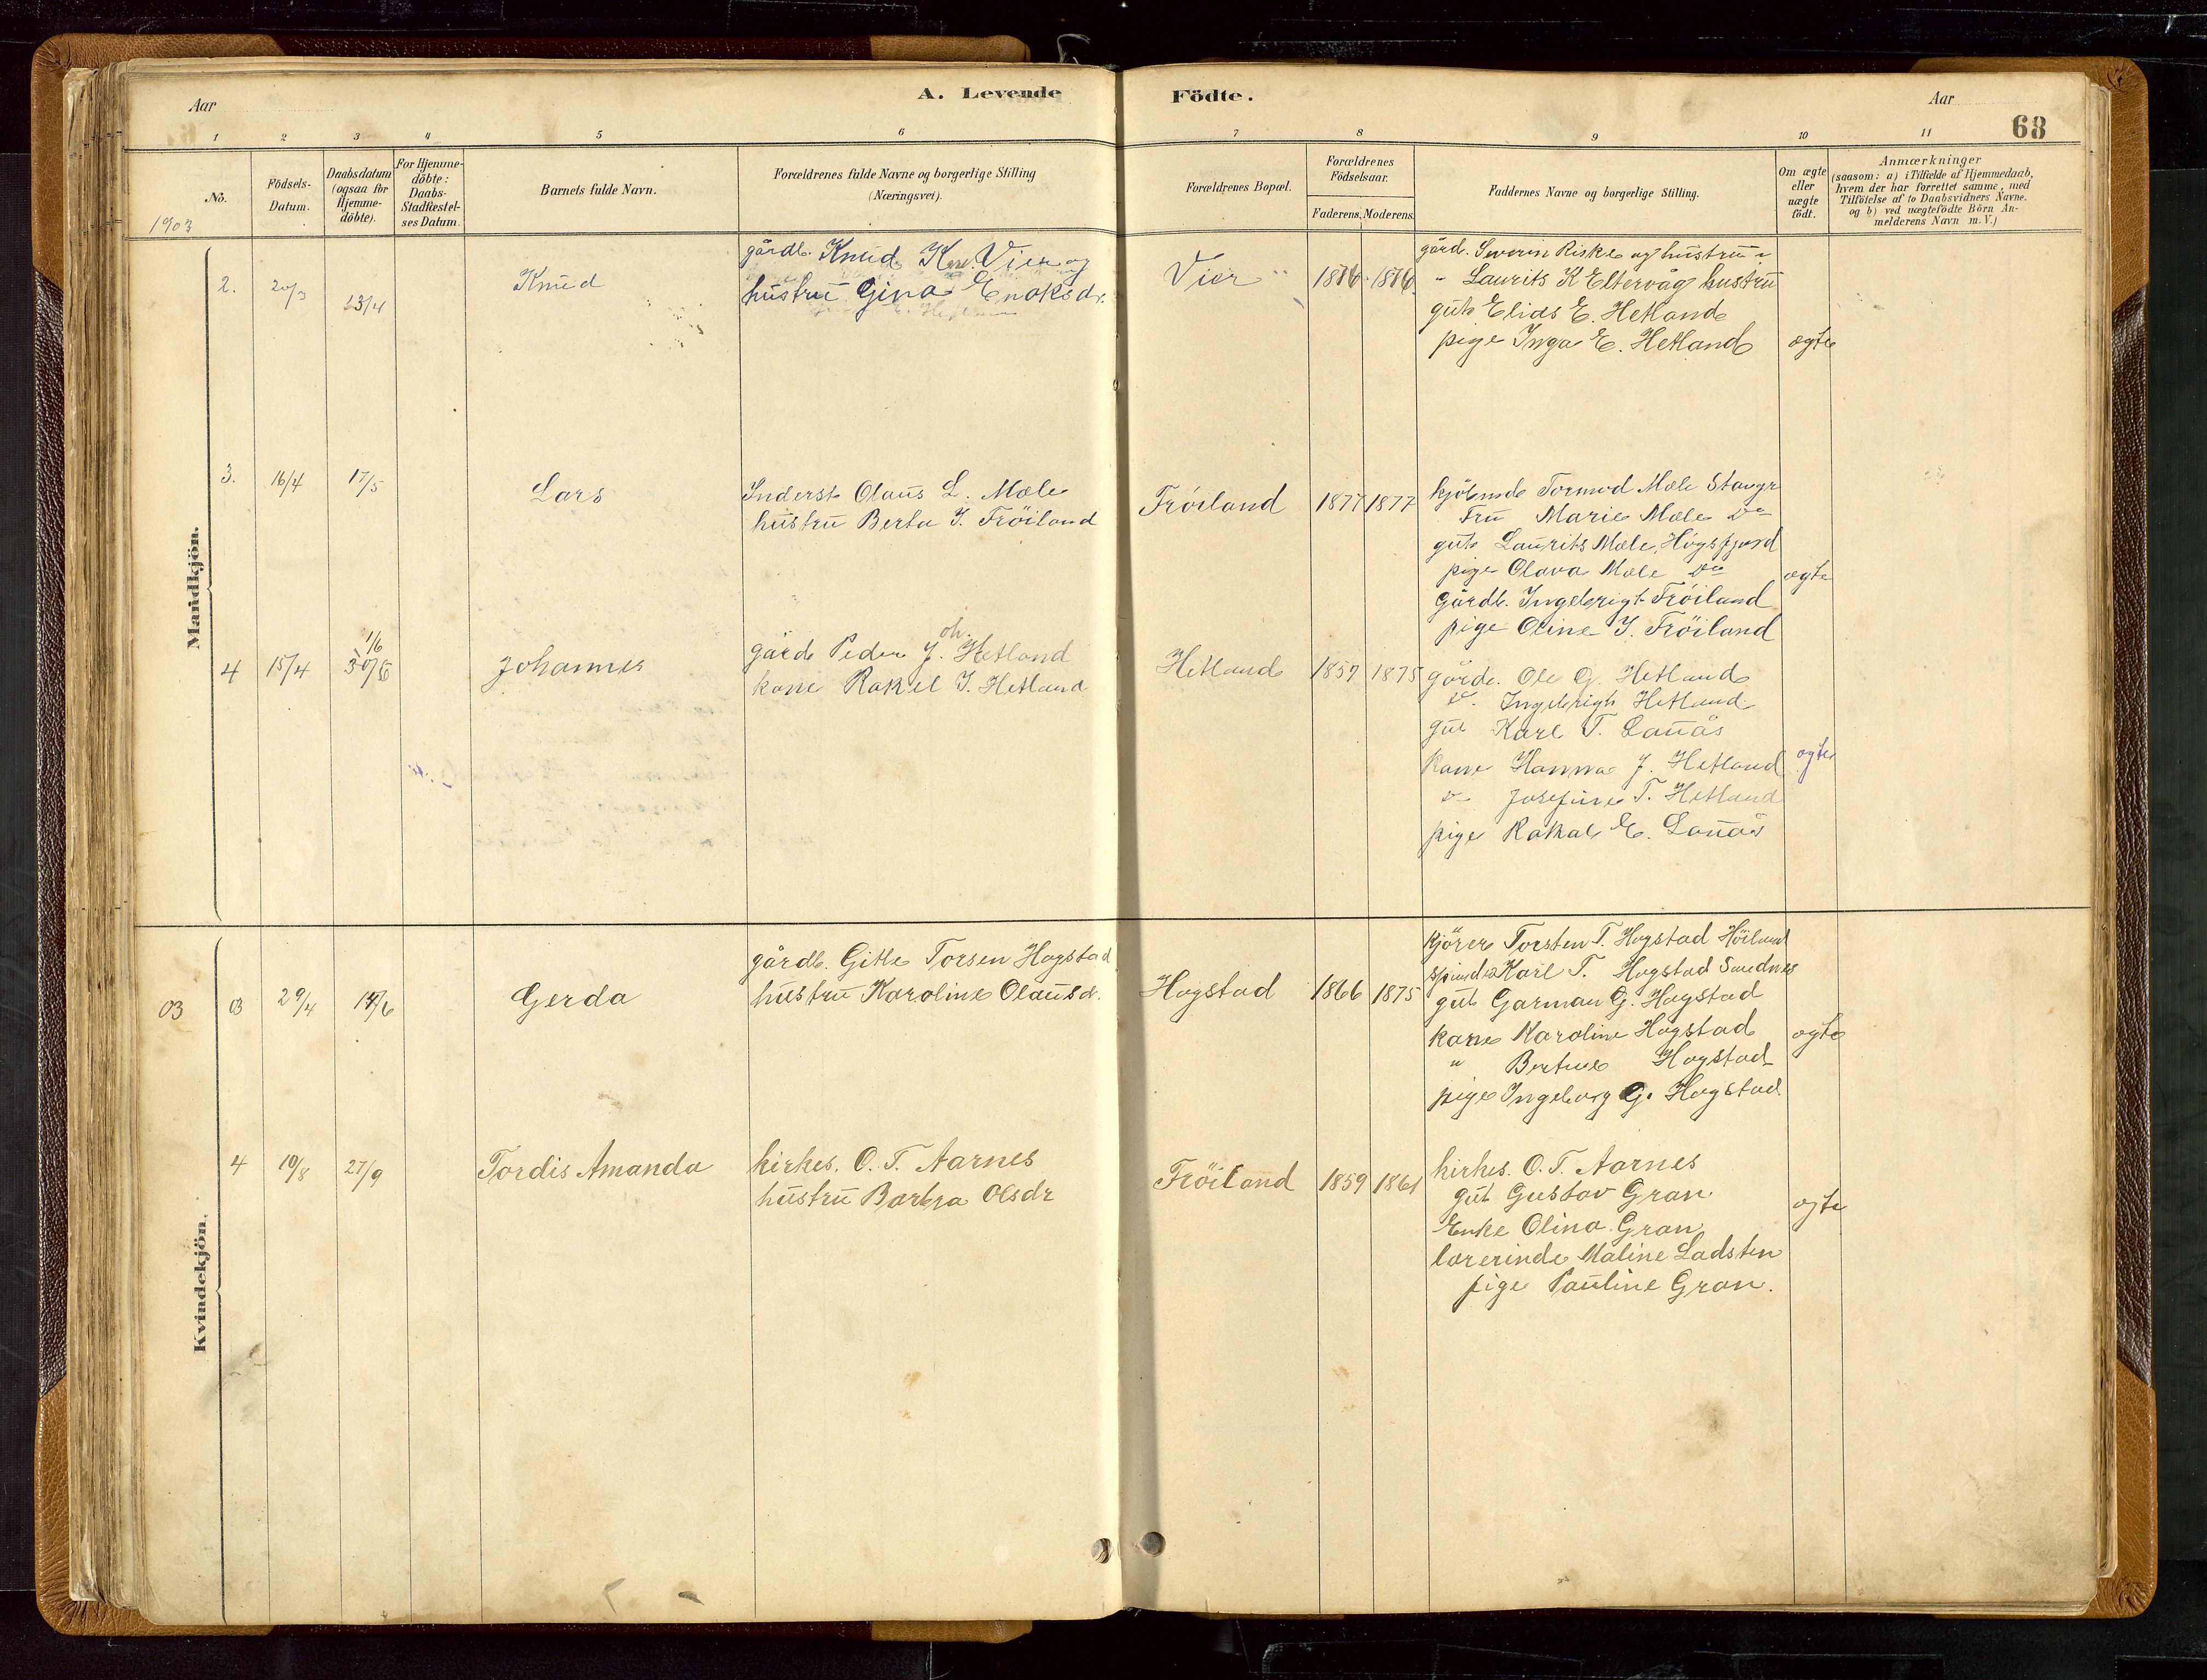 Aar
A. Levende
Födte.
Aar
68
1 2 3 4 5 6 7 8 9 10 11
No.
Födsels-
Datum.
Daabsdatum
(ogsaa for
Hjemme-
döbte).
For Hjemme-
döbte:
Daabs-
Stadfæstel-
ses Datum.
Barnets fulde Navn.
Forældrenes fulde Navne og borgerlige Stilling
(Næringsvei).
Forældrenes Bopæl.
Forældrenes
Födselsaar.
Faderens. Moderens.
Faddernes Navne og borgerlige Stilling.
Om ægte
eller
uægte
födt.
Anmærkninger
(saasom: a) i Tilfælde af Hjemmedaab,
hvem der har forrettet samme, med
Tilföielse af to Daabsvidners Navne.
og b) ved uægtefödte Börn An-
melderens Navn m. V.)
1903
Mandkjön.
2. 20/3 13/4
Knud
gårdb. Knud Vier og
hustru Gina Enoksdr.
Vier
1876 1876
gård. Severin Riske og hustru
" Laurits K Eltervåg hustru
gut Elias E. Hetland
pige Inga E. Hetland
ægte
3. 16/4 17/5
Lars
Inderst Olaus L. Mæle
hustru Berta I. Fröiland
Fröiland
1877 1877
kjöbmd Tormod Mæle Stavgr
Fru Marie Mæle Do
gut Laurits Mæle, Högsfjord
pige Olava Mæle Do
Gårdb. Ingebrigt Fröiland
pige Oline I. Fröiland
ægte
4 15/4 1/6
Johannes
gårdb Peder Joh. Hetland
kone Rakel I. Hetland
Hetland
1857 1875
gårdb. Ole G. Hetland
Do. Ingebrigt Hetland
gut Karl T. Lauås
kone Hanna J. Hetland
Do Josefine T. Hetland
pige Rakal E. Lauås
ægte
Kvindekjön.
03 03 29/4 14/6
Gerda
gårdb. Gitle Torsen Hogstad
hustru Karoline Olausd.
Hogstad
1866 1875
kjörer Torsten T. Hogstad Höiland
Karl T. Hogstad Sandnes
gut Garman G. Hogstad
kone Karoline Hogstad
" Bertine Hogstad
pige Ingeborg G. Hogstad
ægte
4 10/8 27/9
Tordis Amanda
kirkes. O. T. Aarnes
hustru Barbra Olsdr
Fröiland
1859 1861
kirkes. O. T. Aarnes
gut Gustav Gran
Enke Olina Gran
lærerinde Maline Ladsten
pige Pauline Gran.
ægte